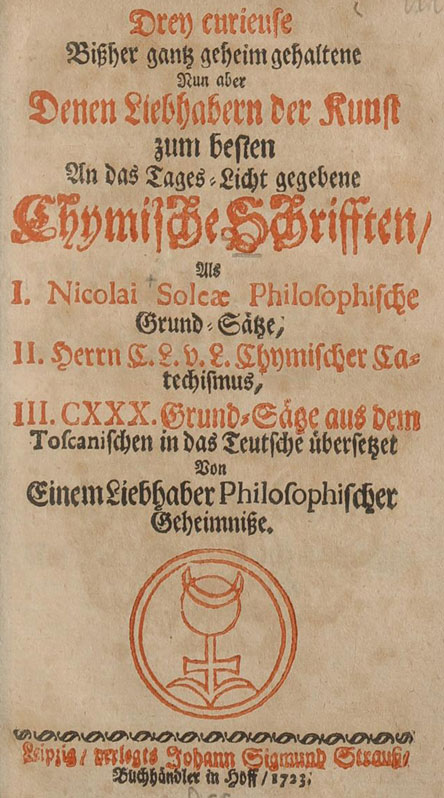 Drey curieuse
Bißher gantz geheim gehaltene
Nun aber
Denen Liebhabern der Kunst
zum besten
An das Tages-Licht gegebene
Chymische Schrifften/
Als
I. Nicolai Soleæ Philosophische
Grund-Sätze,
II. Herrn C. L. v. L. Chymischer Ca-
techismus,
III. CXXX. Grund-Sätze aus dem
Toscanischen in das Teutsche übersetzet
Von
Einem Liebhaber Philosophischer
Geheimniße.
Leipzig/ verlegts Johann Sigmund Strauß/
Buchhändler in Hoff/ 1723.